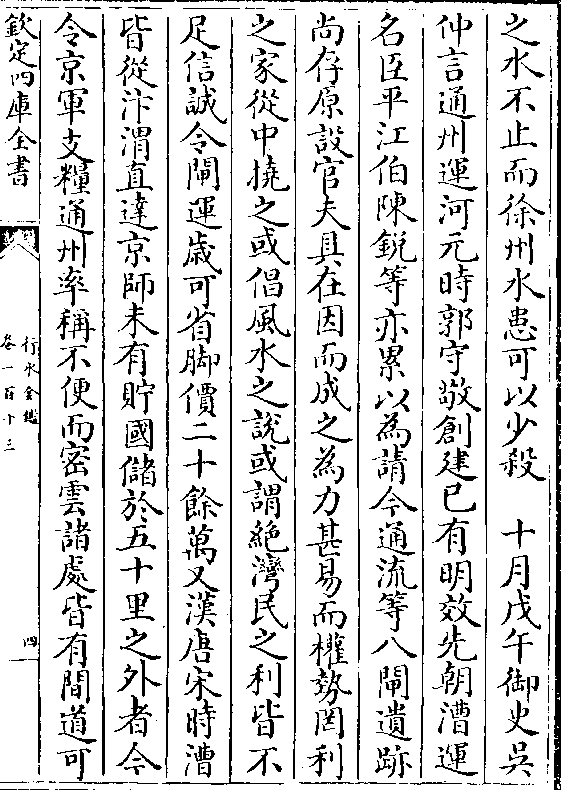 之水不止而徐州水患可以少殺　十月戊午御史吳
仲言通州運河元時郭守敬創建已有明效先朝漕運
名臣平江伯陳銳等亦累以為請今通流等八閘遺跡
尚存原設官夫具在因而成之為力甚易而權勢罔利
之家從中撓之或倡風水之說或謂絶灣民之利皆不
足信誠令閘運歲可省脚價二十餘萬又漢唐宋時漕
皆從汴渭直達京師未有貯國儲於五十里之外者今
令京軍支糧通州率稱不便而密雲諸處皆有間道可
欽定四庫全書
行水金鑑
卷一百十三
四